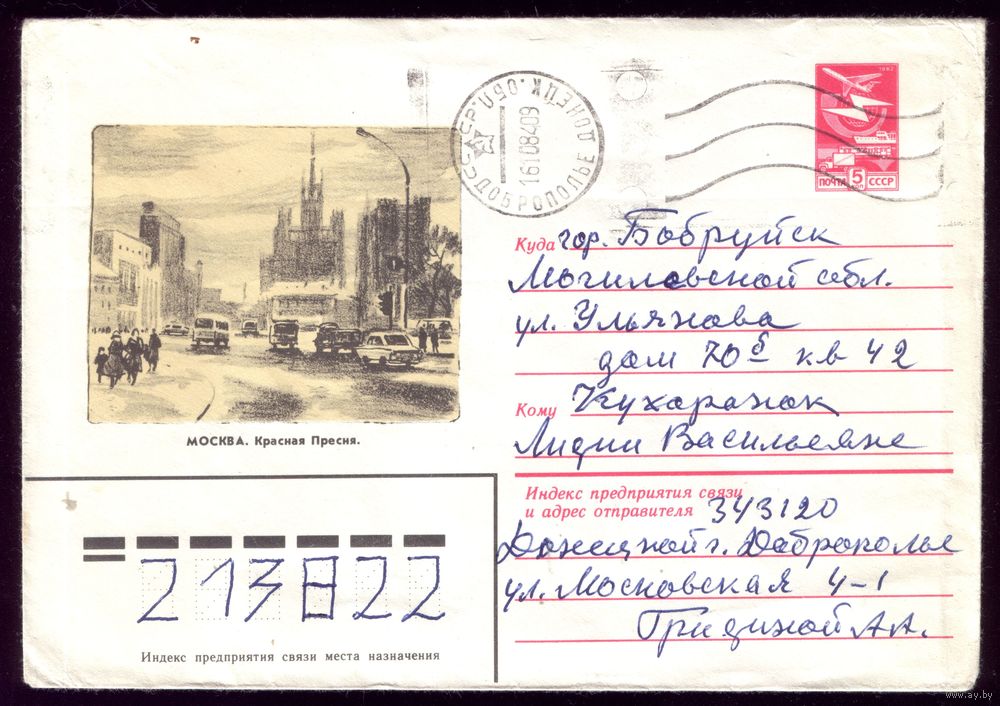 1982
ПОЧТА 5 КОП СССР
СССР. ДОБРОПОЛЬЕ ДОНЕЦК. ОБЛ.
16108409
Куда гор. Бобруйск
Могиловской обл.
ул. Ульянова
дом 70б кв 42
Кому Кухаранок
Лидии Васильевне
МОСКВА. Красная Пресня.
Индекс предприятия связи
и адрес отправителя 343120
Донецкой г. Доброполье
ул. Московская 4-1
Гридиной А А.
213822
Индекс предприятия связи места назначения
www.ay.by